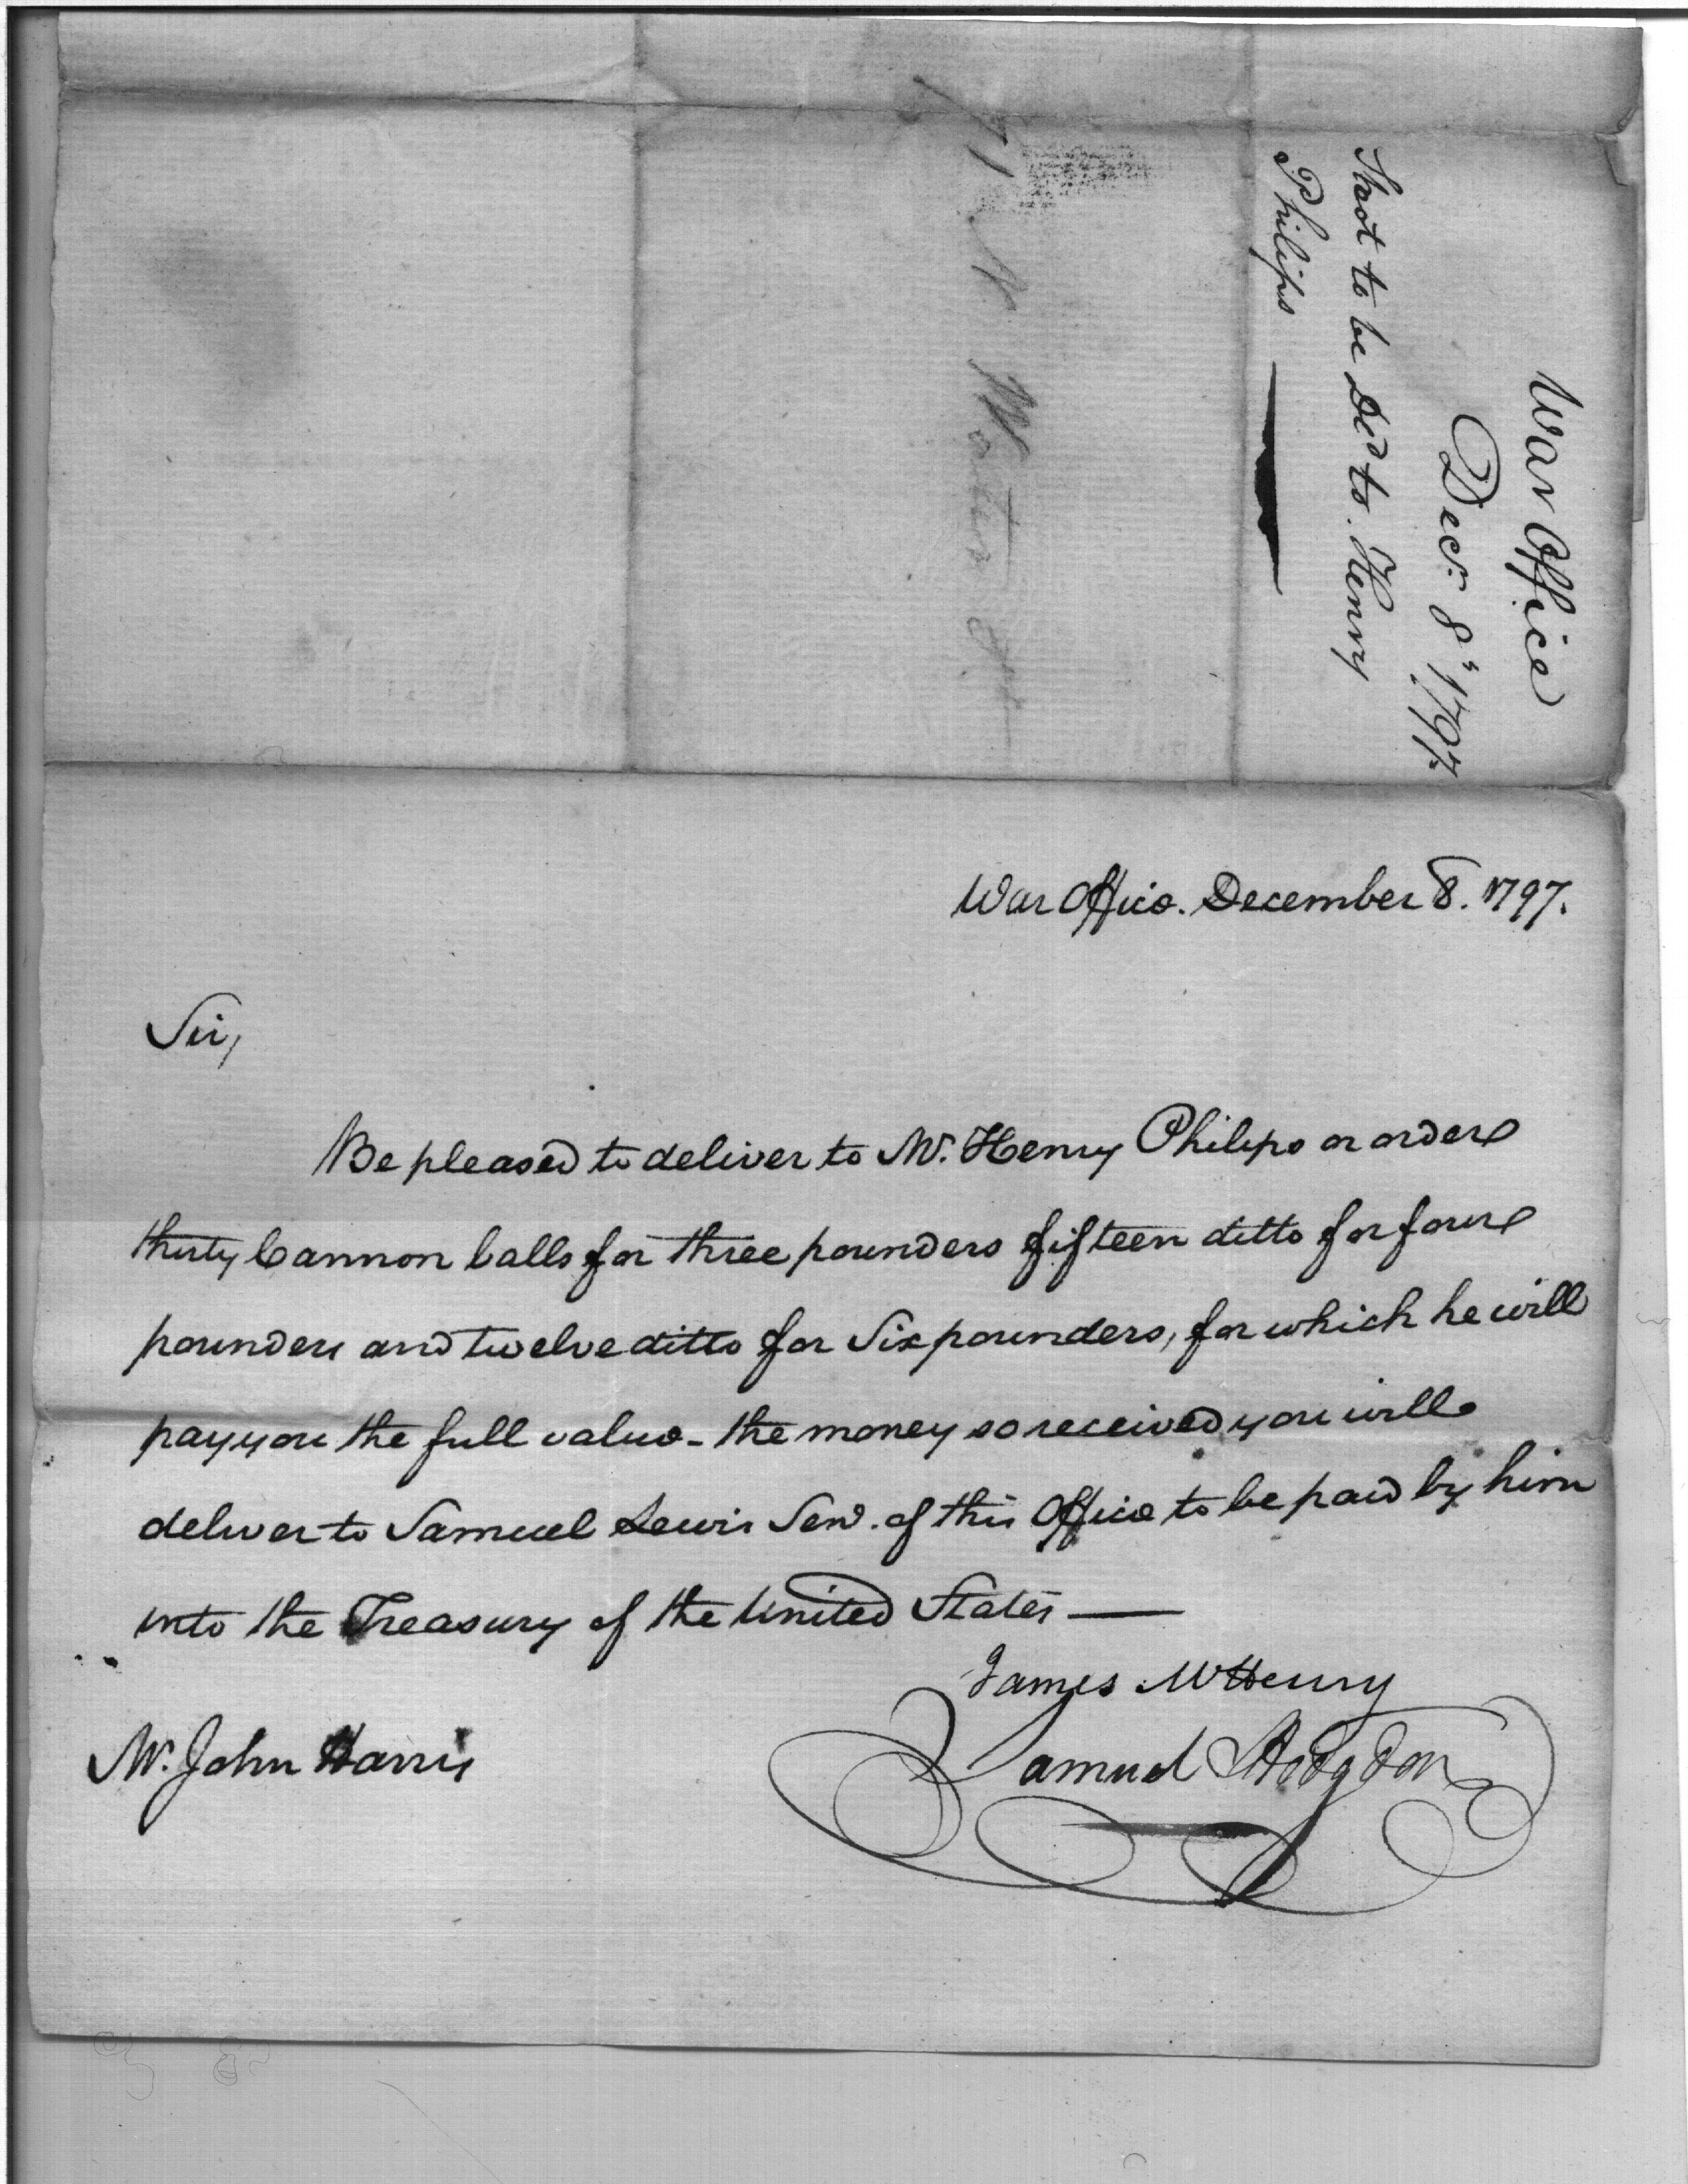 War Office
Decr. 8th 1797.
Shot to be Dd to Henry
Philips
War Office. December 8. 1797.
Sir,
Be pleased to deliver to Mr. Henry Philips or order
thirty Cannon balls for three pounders fifteen ditto for four
pounders and twelve ditto for Six pounders, for which he will
pay you the full value - the money so received you will
deliver to Samuel Lewis Senr. of this Office to be paid by him
into the Treasury of the United States —
James McHenry
Samuel Hodgdon
Mr. John Harris